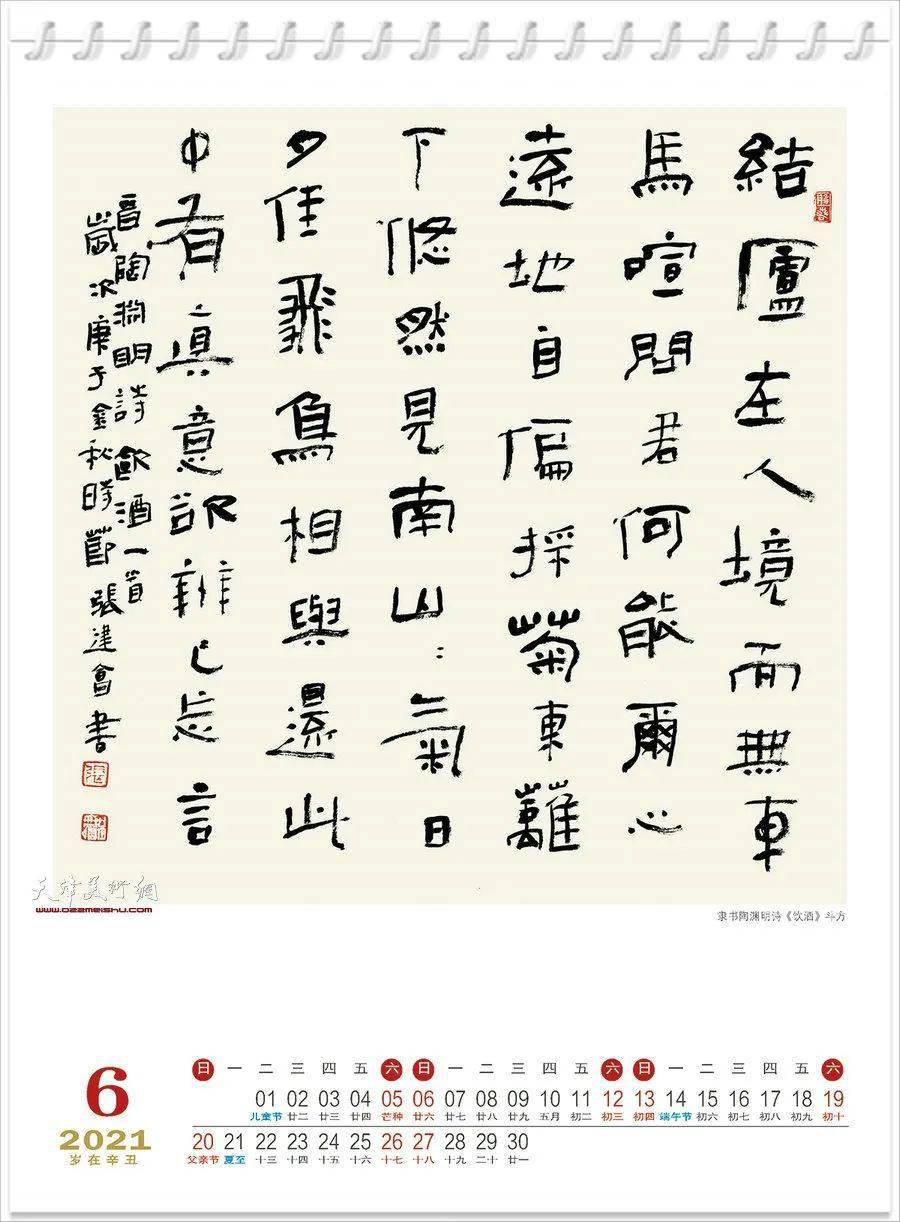 結廬在人境而無車
馬喧問君何能爾心
遠地自偏採菊東籬
下悠然見南山〻氣日
夕佳飛鳥相與還此
中有眞意欲辨已忘言
晉陶淵明詩飲酒一首
歲次庚子金秋時節張建會書
張
天津美術網
www.022meishu.com
隶书陶渊明诗《饮酒》斗方
6
2021
岁在辛丑
日 一 二 三 四 五 六 日 一 二 三 四 五 六 日 一 二 三 四 五 六
01 02 03 04 05 06 07 08 09 10 11 12 13 14 15 16 17 18 19
儿童节 廿二 廿三 廿四 芒种 廿六 廿七 廿八 廿九 五月 初二 初三 初四 端午节 初六 初七 初八 初九 初十
20 21 22 23 24 25 26 27 28 29 30
父亲节 夏至 十三 十四 十五 十六 十七 十八 十九 二十 廿一